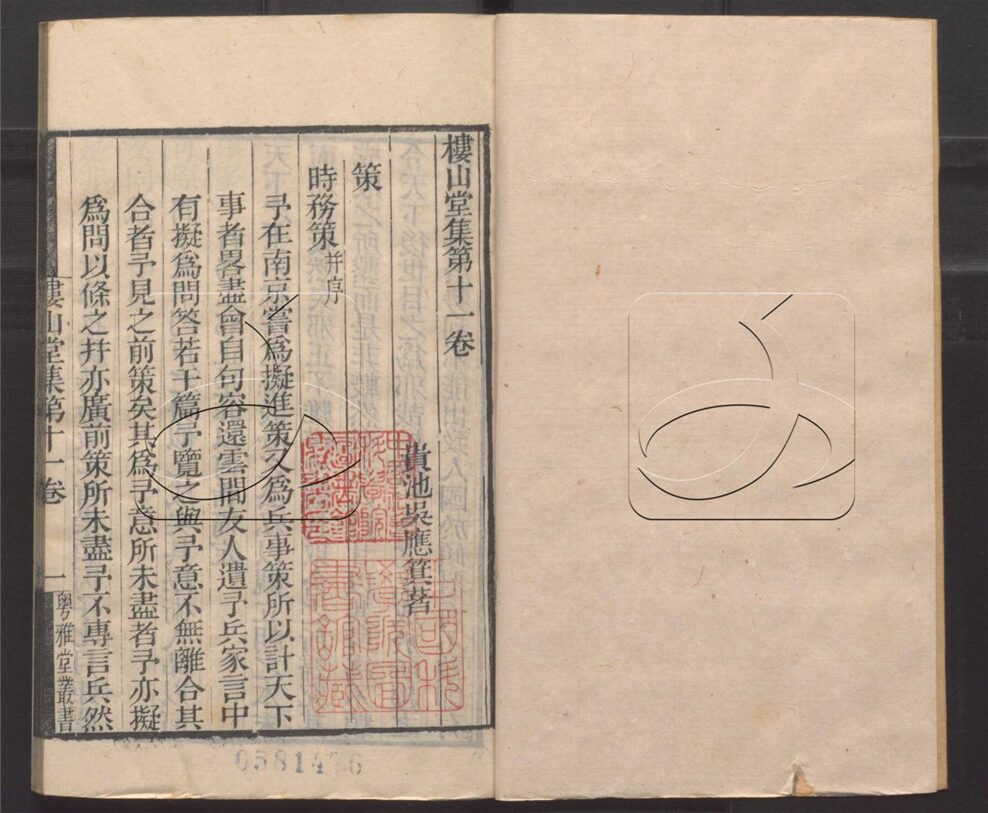 樓山堂集第十一卷
貴池吳應箕著
策
時務策并序
予在南京嘗爲擬進策又爲兵事策所以計天下
事者畧盡會自句容還雲間友人遺予兵家言中
有擬爲問答若干篇予覽之與予意不無離合其
合者予見之前策矣其爲予意所未盡者予亦擬
爲問以條之幷亦廣前策所未盡予不專言兵然
樓山堂集第十一卷
一
粵雅堂叢書